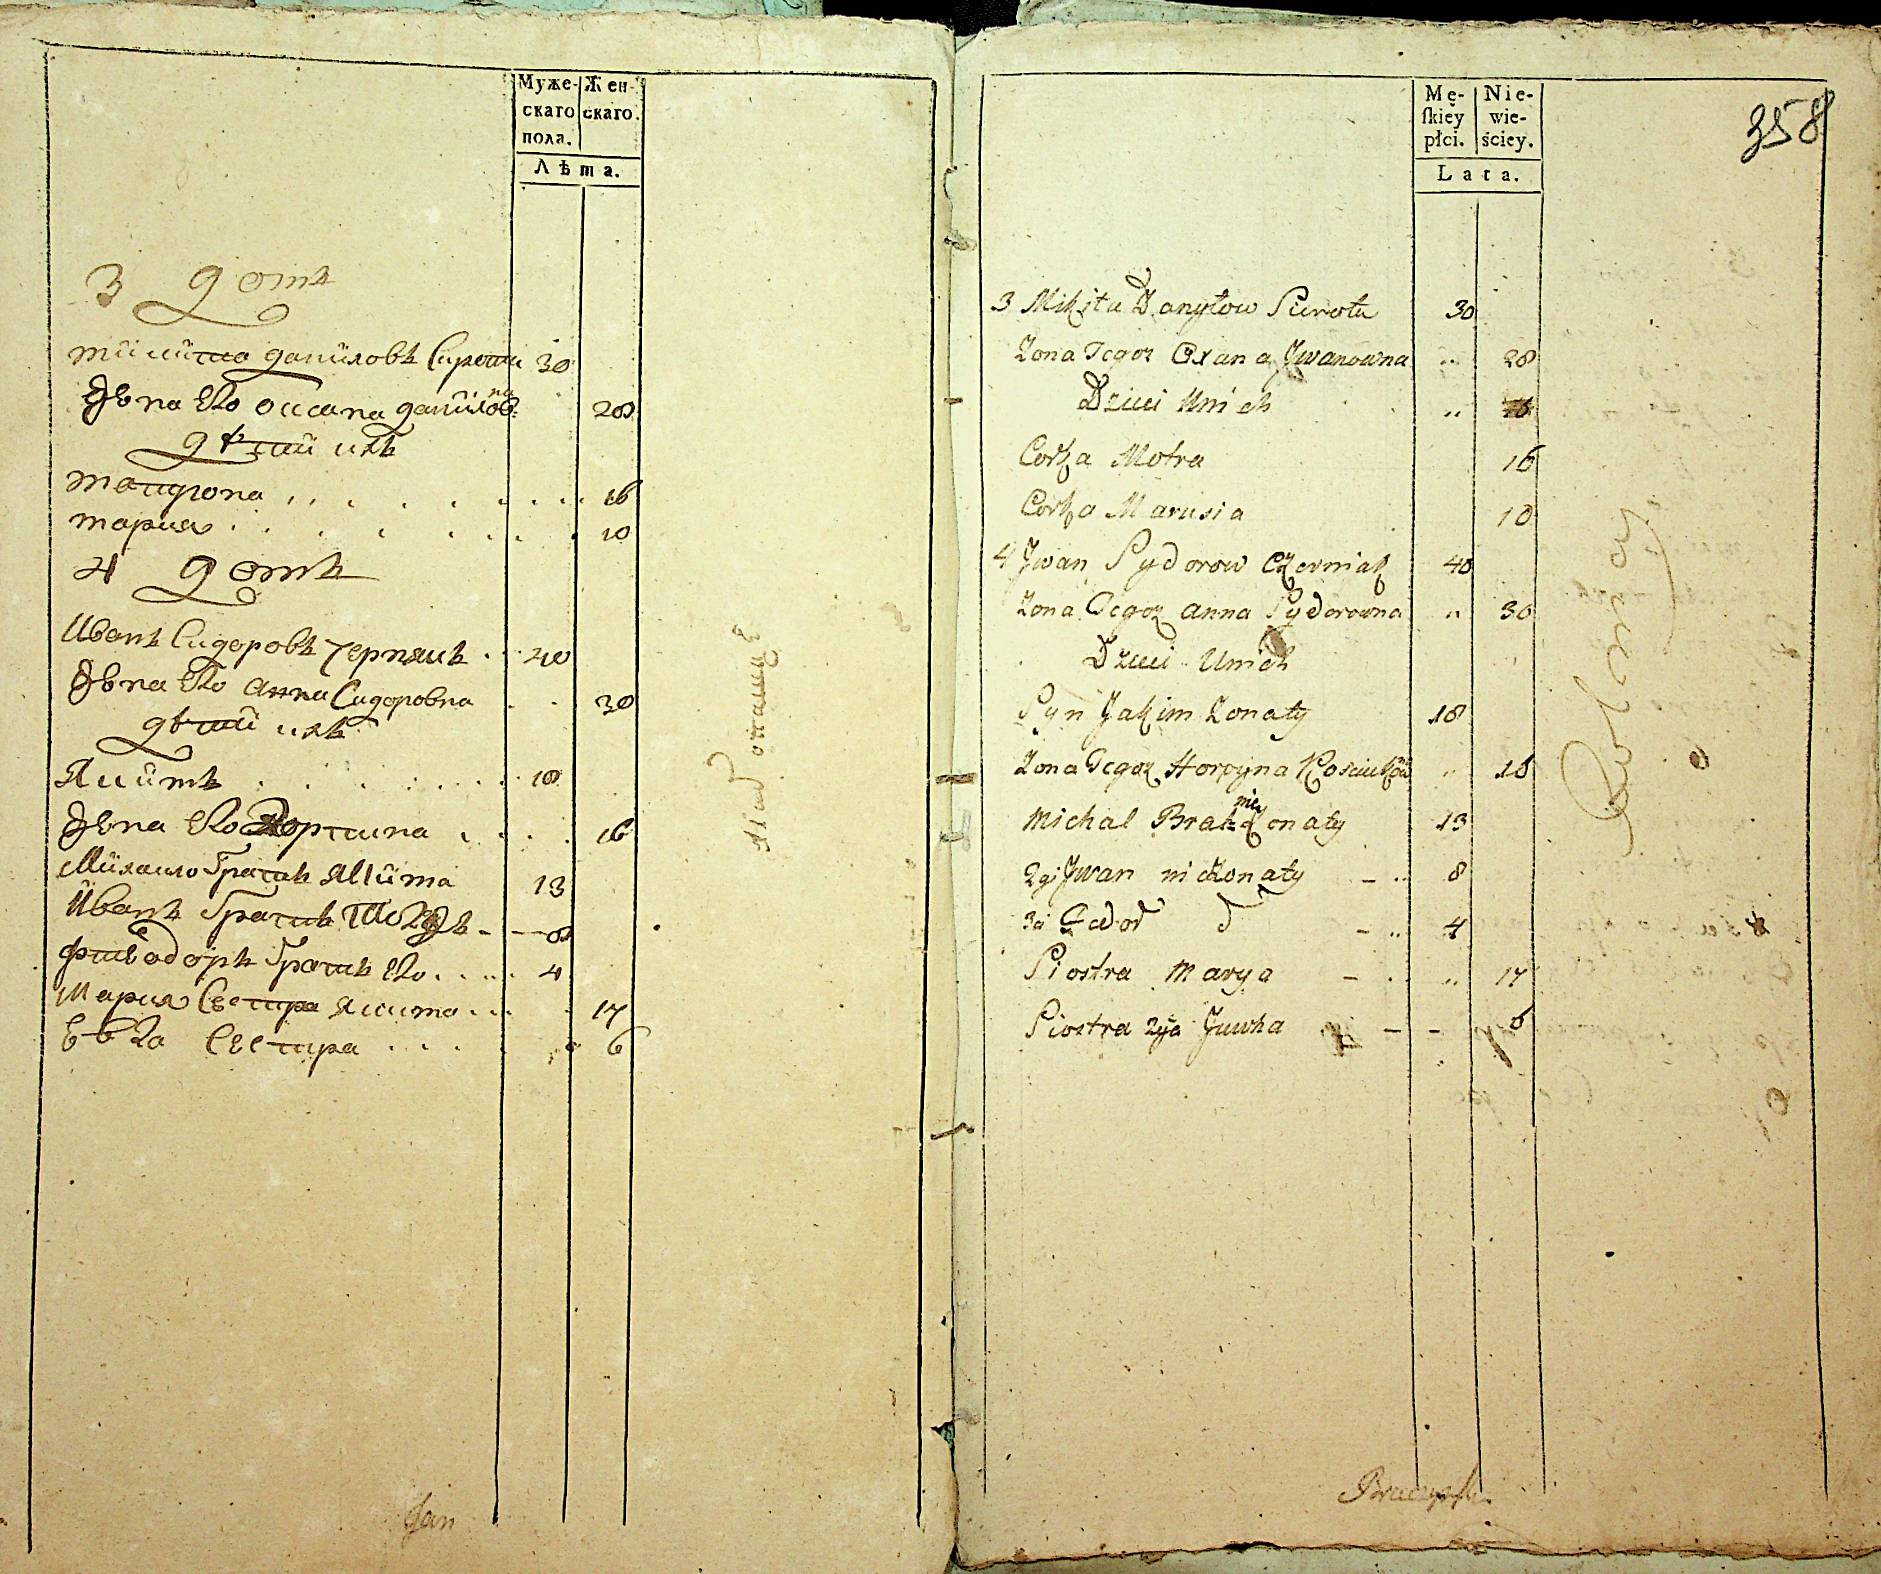 Муже-
скаго
пола.
Жен-
скаго.
Лѣта.
3 домъ
микита даниловъ Сирота 30
жена Его оксана данилов:на 28
дѣти ихъ
мандрона 16
мария 10
4 домъ
Иванъ Сидоровъ Чернякъ 40
жена Его анна Сидоровна 30
дѣти ихъ
Якимъ 18
жена Его 16
Михаило братъ Якима 13
Иванъ братъ 8
братъ Его 4
Мария Сестра Якима 17
Евка Сестра 6
Jan
358
Mę-
ſkiey
płci.
Nie-
wie-
ściey.
Lata.
3 Mikita Danyłow Sierota 30
Zona Tegoz Oxana Jwanowna 28
Dzieci Unich
Corka Motra 16
Corka Marusia 10
4 Jwan Sydorow Czerniak 40
Zona Tegoz Anna Sydorowna 30
Dzieci Unich
Syn Jakim Zonaty 18
Zona Tegoz Horpyna 16
Michal Brat nie Zonaty 13
2gi Jwan nie Zonaty 8
3i Fedor d 4
Siostra Marya 17
Siostra 2ga Juwha 6